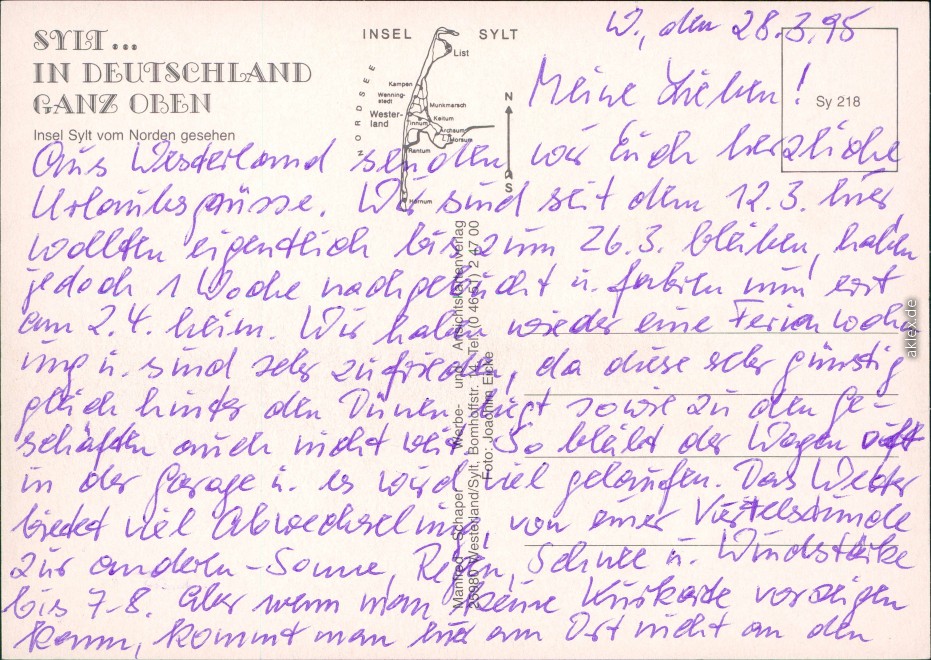 W., den 28.3.95
SYLT...
IN DEUTSCHLAND
GANZ OBEN
Insel Sylt vom Norden gesehen
INSEL SYLT
NORDSEE
List
Kampen
Wenning-
stedt
Munkmarsch
Wester-
land
Keitum
Tinnum
Archsum
Morsum
Rantum
Hörnum
N
S
Sy 218
Meine Lieben!
Aus Westerland senden wir Euch herzliche
Urlaubsgrüsse. Wir sind seit dem 12.3. hier
wollten eigentlich bis zum 26.3. bleiben, haben
jedoch 1 Woche nachgebucht u. fahren nun erst
am 2.4. heim. Wir haben wieder eine Ferienwohn
ung u. sind sehr zufrieden, da diese sehr günstig
gleich hinter den Dünen liegt sowie zu den Ge-
schäften auch nicht weit. So bleibt der Wagen oft
in der Garage u. es wird viel gelaufen. Das Wetter
bietet viel Abwechselung, von einer Viertelstunde
zur andern - Sonne, Regen, Schnee u. Windstärke
bis 7-8. Aber wenn man keine Kurkarte vorzeigen
kann, kommt man hier am Ort nicht an den
Manfred Schaper, Werbe- und Ansichtskartenverlag
25980 Westerland/Sylt, Bomhoffstr. 14, Tel. (0 46 51) 2 47 00
Foto: Joachim Eicke
aklex.de